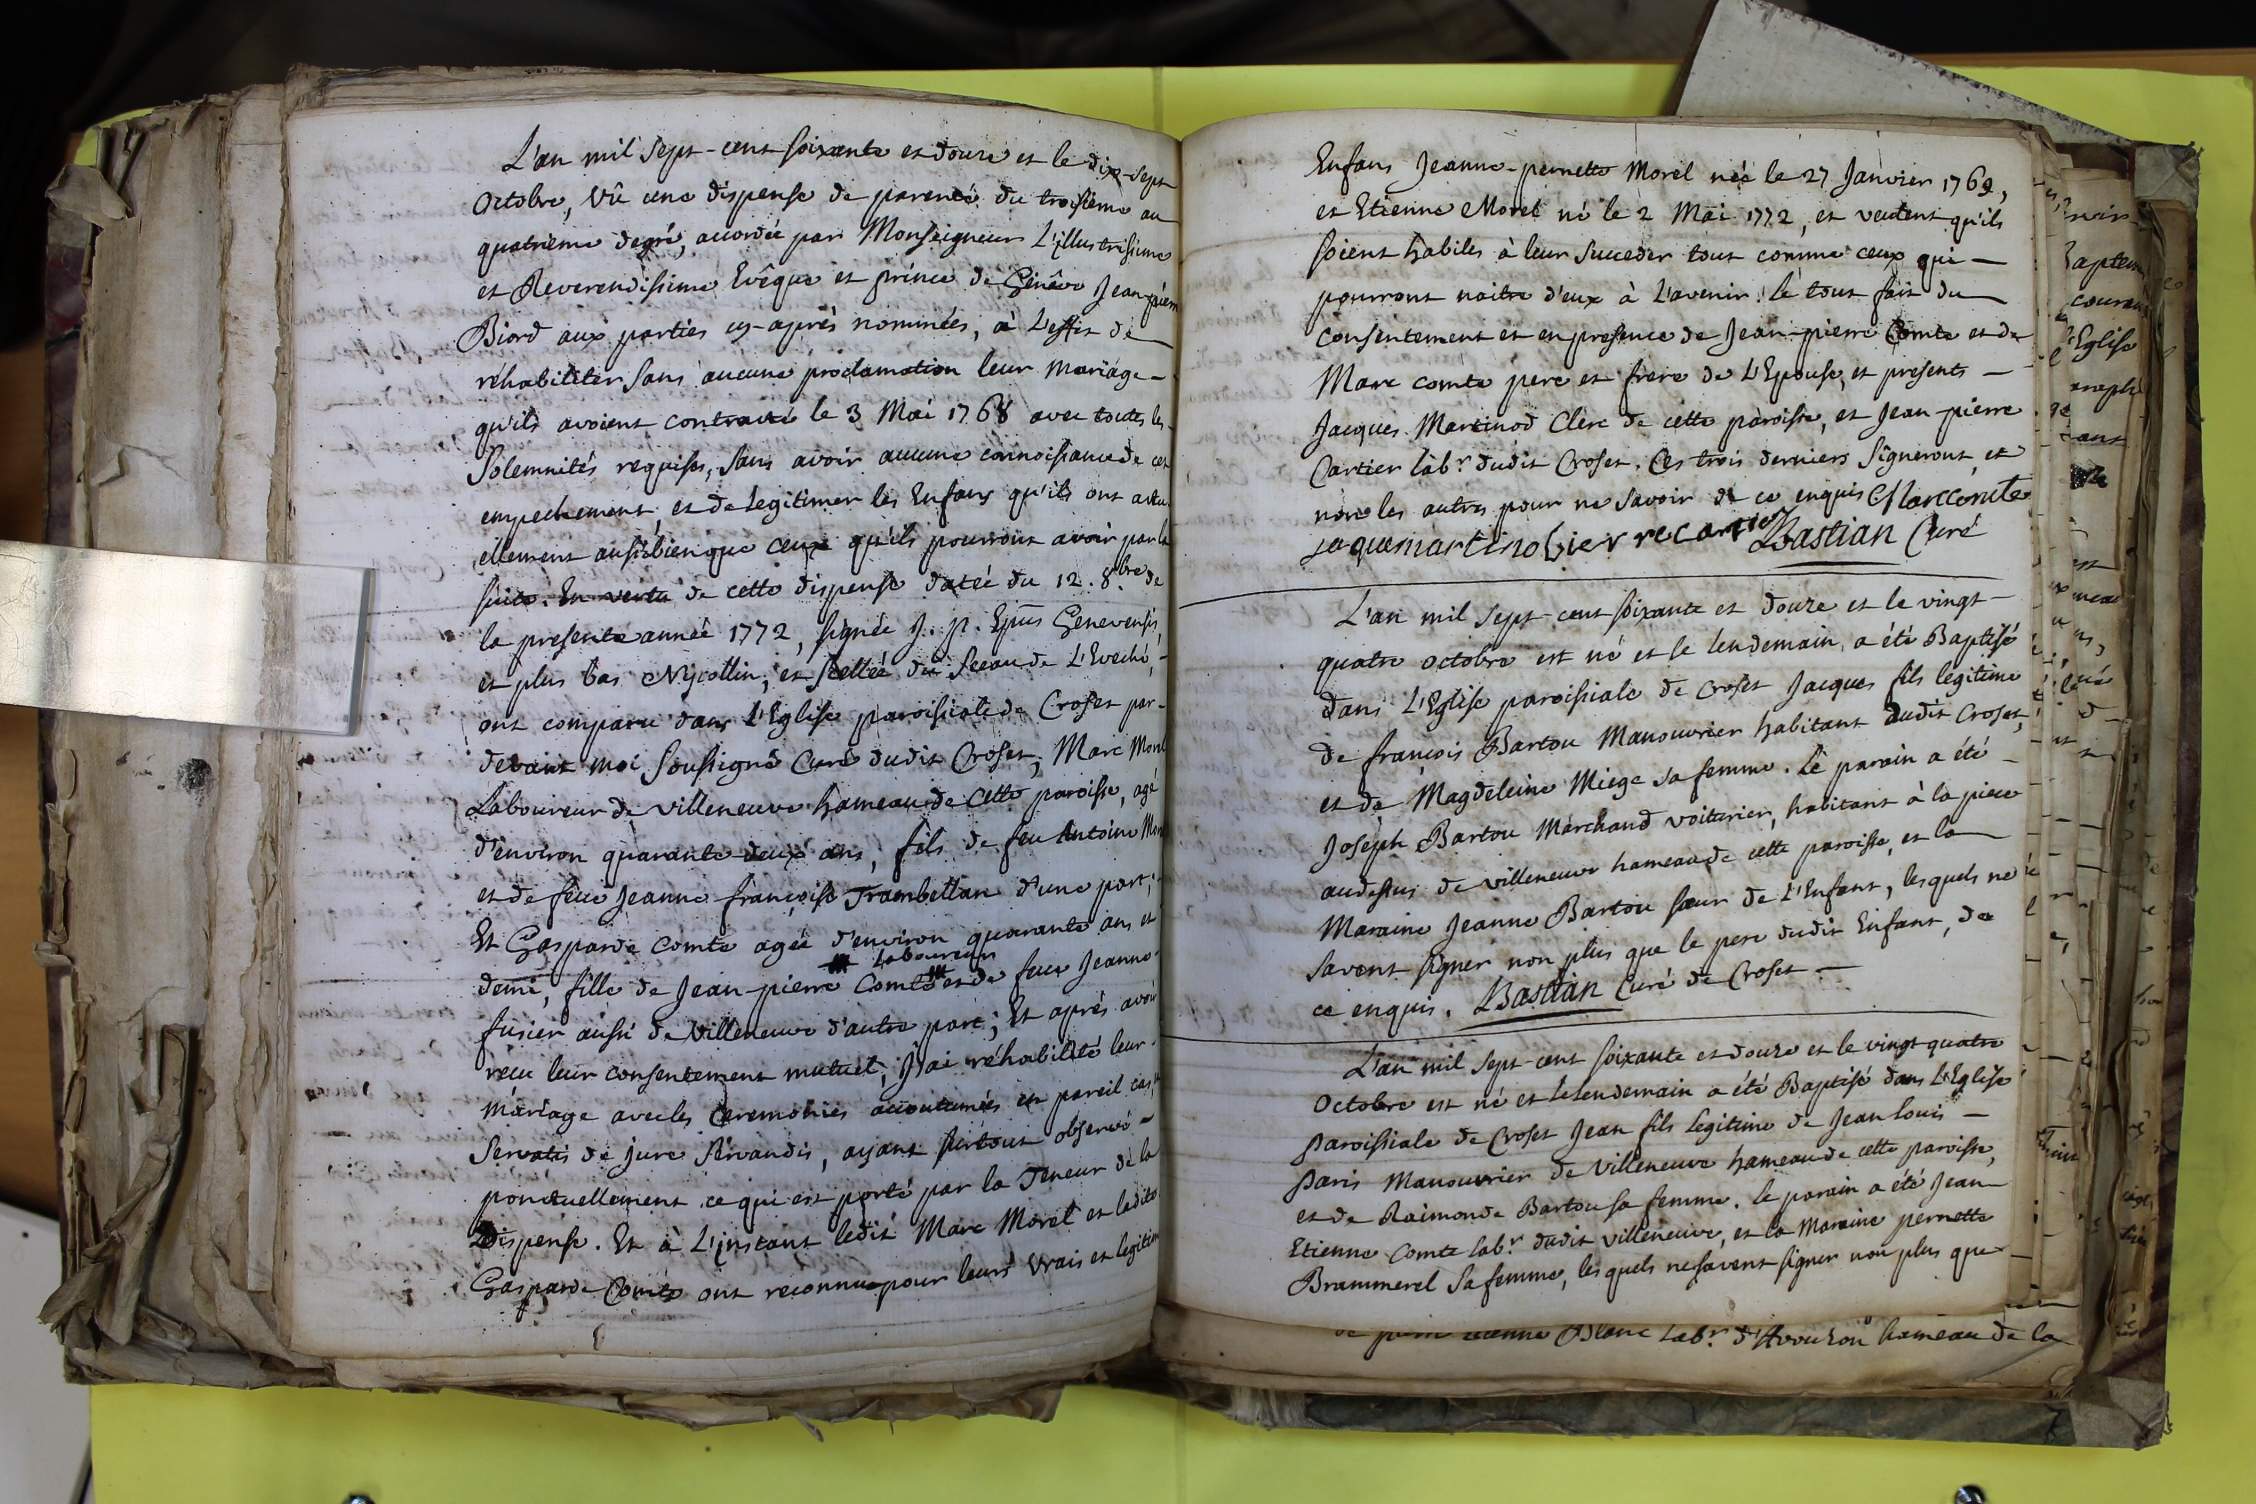 L'an mil sept-cent soixante et douze et le dix-sept
Octobre, Vû une dispense de parenté du troisième au
quatrième degré, accordée par Monseigneur L'illustrissime
et Reverendissime Evêque et prince de Genêve Jean-pierre
Biord aux parties cy-après nommées, à L'effet de
réhabiliter sans aucune proclamation leur mariage
qu'ils avoient contracté le 3 Mai 1768 avec toutes les
Solemnités requises, sans avoir aucune connoissance de cet
empechement, et de Legitimer les Enfans qu'ils ont actu
ellement aussi bien que ceux qu'ils pourront avoir par la
suite. En vertu de cette dispense datée du 12. 8bre de
la presente année 1772, signée J. p. Epus Genevensis,
et plus bas Nycollin, et scellée du sceau de L'Eveché,
ont comparu dans L'Eglise paroissiale de Croset par-
devant moi Soussigné Curé dudit Croset, Marc Morel
Laboureur de Villeneuve hameau de cette paroisse, agé
d'environ quarante-deux ans, fils de feu Antoine Mor
et de feue Jeanne françoise Trambellan d'une part,
Et Gasparde Comte agée d'environ quarante ans et
Laboureur
demi, fille de Jean-pierre Comte et de feue Jeanne
fusier aussi de Villeneuve d'autre part; Et après avoir
reçu leur consentement mutuel, J'ai réhabilité leur
mariage avec les Ceremonies accoutumées en pareil cas,
Servatis de jure Servandis, ayant surtout observé
ponctuellement ce qui est porté par la Teneur de la
Dispense. Et à L'instant ledit Marc Morel et ladite
Gasparde Comte ont reconnu pour leurs vrais et legitim
Enfans Jeanne-pernette Morel née le 27 Janvier 1769,
et Etienne Morel né le 2 Mai 1772, et veulent qu'ils
soient habiles à leur succeder tout comme ceux qui
pourront naitre d'eux à L'avenir. Le tout fait du
consentement et en presence de Jean-pierre Comte et de
Marc comte pere et frere de L'Epouse, et presents
Jacques Martinod Clerc de cette paroisse, et Jean-pierre
Cartier lab.r dudit Croset. Ces trois derniers signeront, et
non les autres pour ne savoir de ce enquis Marc comte
jaque martinod pierre cartier Bastian Curé
L'an mil sept-cent soixante et douze et le vingt-
quatre octobre est né et le lendemain a été Baptisé
dans L'Eglise paroissiale de Croset Jacques fils legitime
de françois Bartou Manouvrier habitant audit Croset,
et de Magdeleine Miege sa femme. Le parain a été
Joseph Bartou Marchand voiturier, habitant à la piece
audessus de Villeneuve hameau de cette paroisse, et la
Maraine Jeanne Bartou sœur de L'Enfant, lesquels ne
savent signer non plus que le pere dudit Enfant, de
ce enquis. Bastian Curé de Croset
L'an mil sept-cent soixante et douze et le vingt quatre
Octobre est né et le lendemain a été Baptisé dans L'Eglise
paroissiale de Croset Jean fils legitime de Jean louis
Paris Manouvrier de Villeneuve hameau de cette paroisse,
et de Raimonde Bartou sa femme. Le parain a été Jean
Etienne Comte lab.r dudit villeneuve, et la Maraine pernette
Brammerel sa femme, lesquels ne savent signer non plus que
Blanc Lab.r d'Avouzon hameau de la